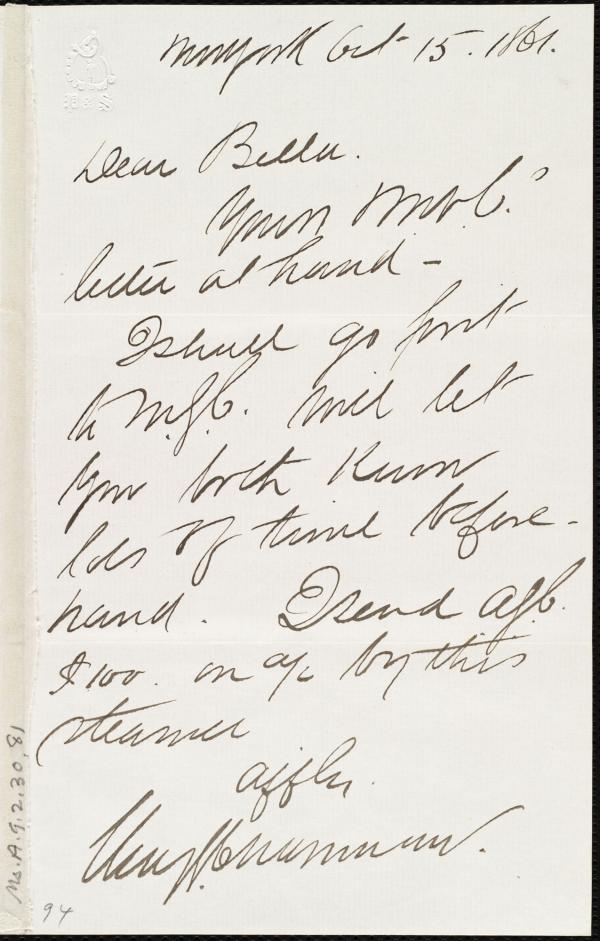 New York Oct 15. 1861.
Dear Bella.
Yours & M.W.C.'s
letter at hand -
I shall go first
to M.G.C. will let
you both know
lots of time before-
hand. I send AGC.
$100. on a/c by this
steamer
affly.
Henry G. Chapman.
Ms. A. 9. 2. 30, 81
94